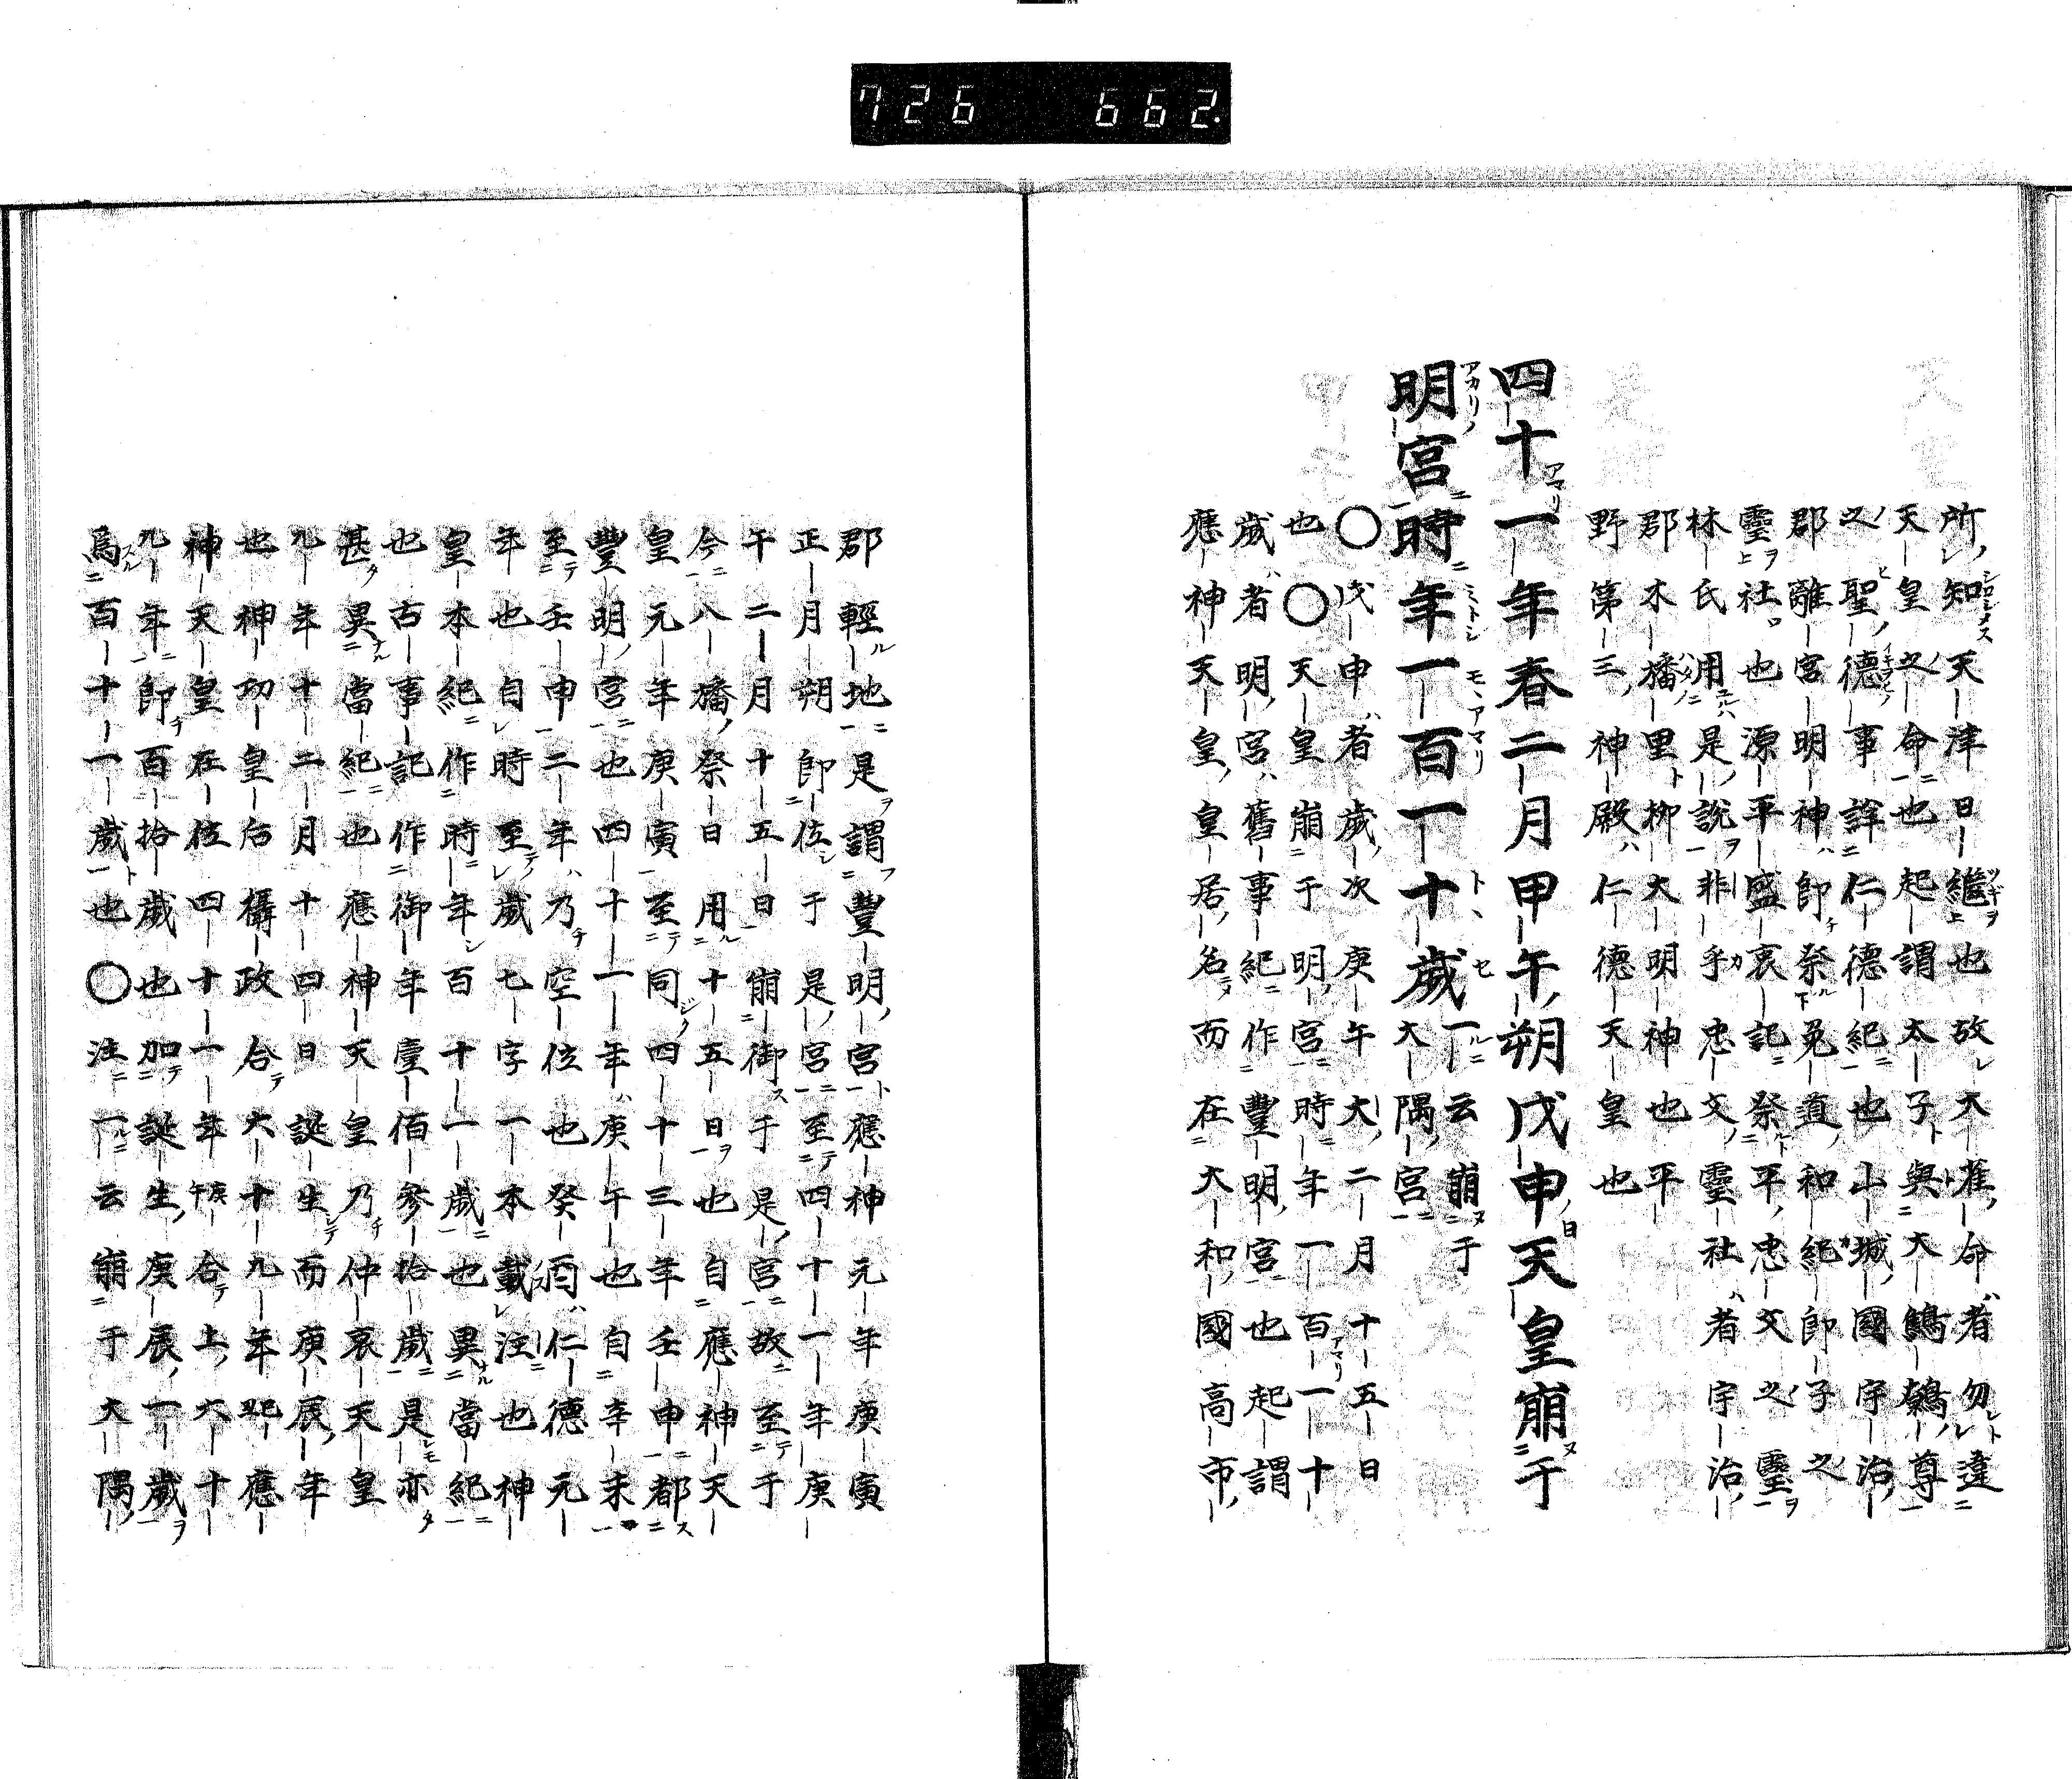 726 662.
所知天津日繼也故大雀命者勿違
天皇之命也起謂太子與大鷦鷯尊
之聖德事詳仁德紀也山城國宇治
郡離宮明神即祭兎道和紀郎子之
靈社也源平盛衰記祭平忠文之靈
林氏用是說非乎忠文靈社者宇治
郡木幡里柳大明神也平
野第三神殿仁德天皇也
四十一年春二月甲午朔戊申天皇崩于
明宮時年一百一十歲一云崩于
大隅宮
〇戊申者歲次庚午大二月十五日
也〇天皇崩于明宮時年一百一十
歲者明宮舊事紀作豐明宮也起謂
應神天皇皇居名而在大和國高市
郡輕地是謂豐明宮應神元年庚寅
正月朔即位于是宮至四十一年庚
午二月十五日崩御于是宮故至于
今八旛祭日用十五日也自應神天
皇元年庚寅至同四十三年壬申都
豐明宮也四十一年庚午也自辛未
至壬申二年乃空位也癸酉仁德元
年也自時至歲七字一本載注也神
皇本紀作時年百十一歲也異當紀
也古事記作御年壹佰參拾歲是亦
甚異當紀也應神天皇乃仲哀天皇
九年十二月十四日誕生而庚辰年
也神功皇后攝政合六十九年應
神天皇在位四十一年庚午合上六十
九年即百拾歲也加誕生庚辰一歲
爲百十一歲也〇注一云崩于大隅